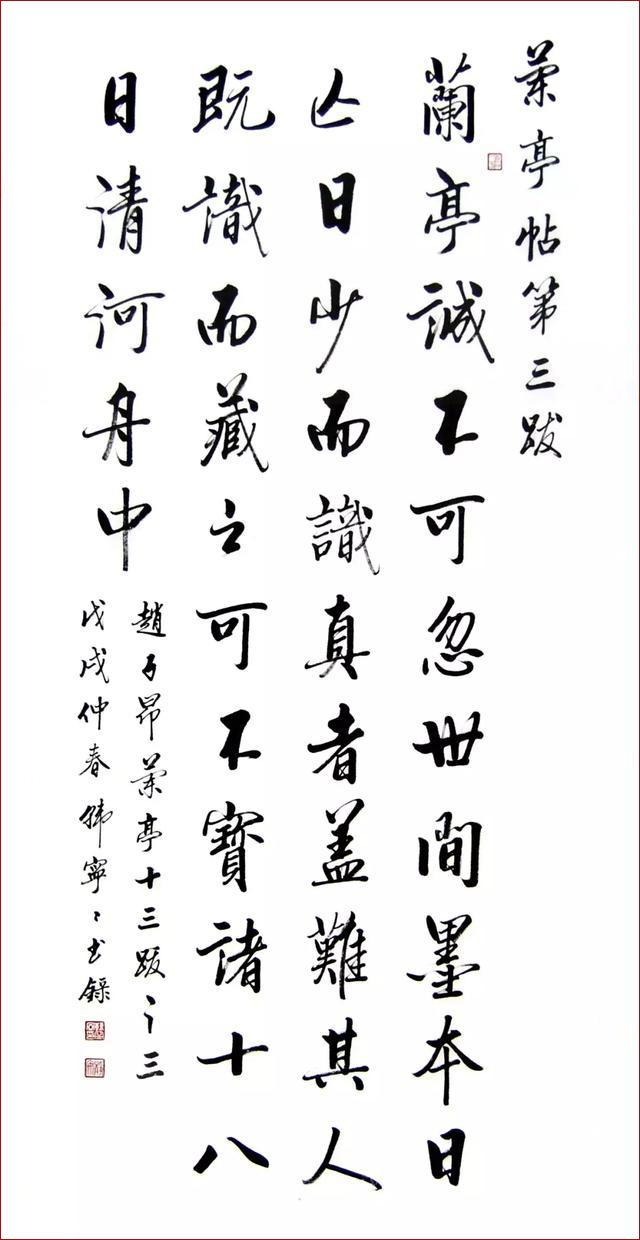 蘭亭帖第三跋
蘭亭誠不可忽世間墨本日
亾日少而識真者盖難其人
既識而藏之可不寶諸十八
日清河舟中
趙子昂蘭亭十三跋之三
戊戌仲春韓寧〻書録